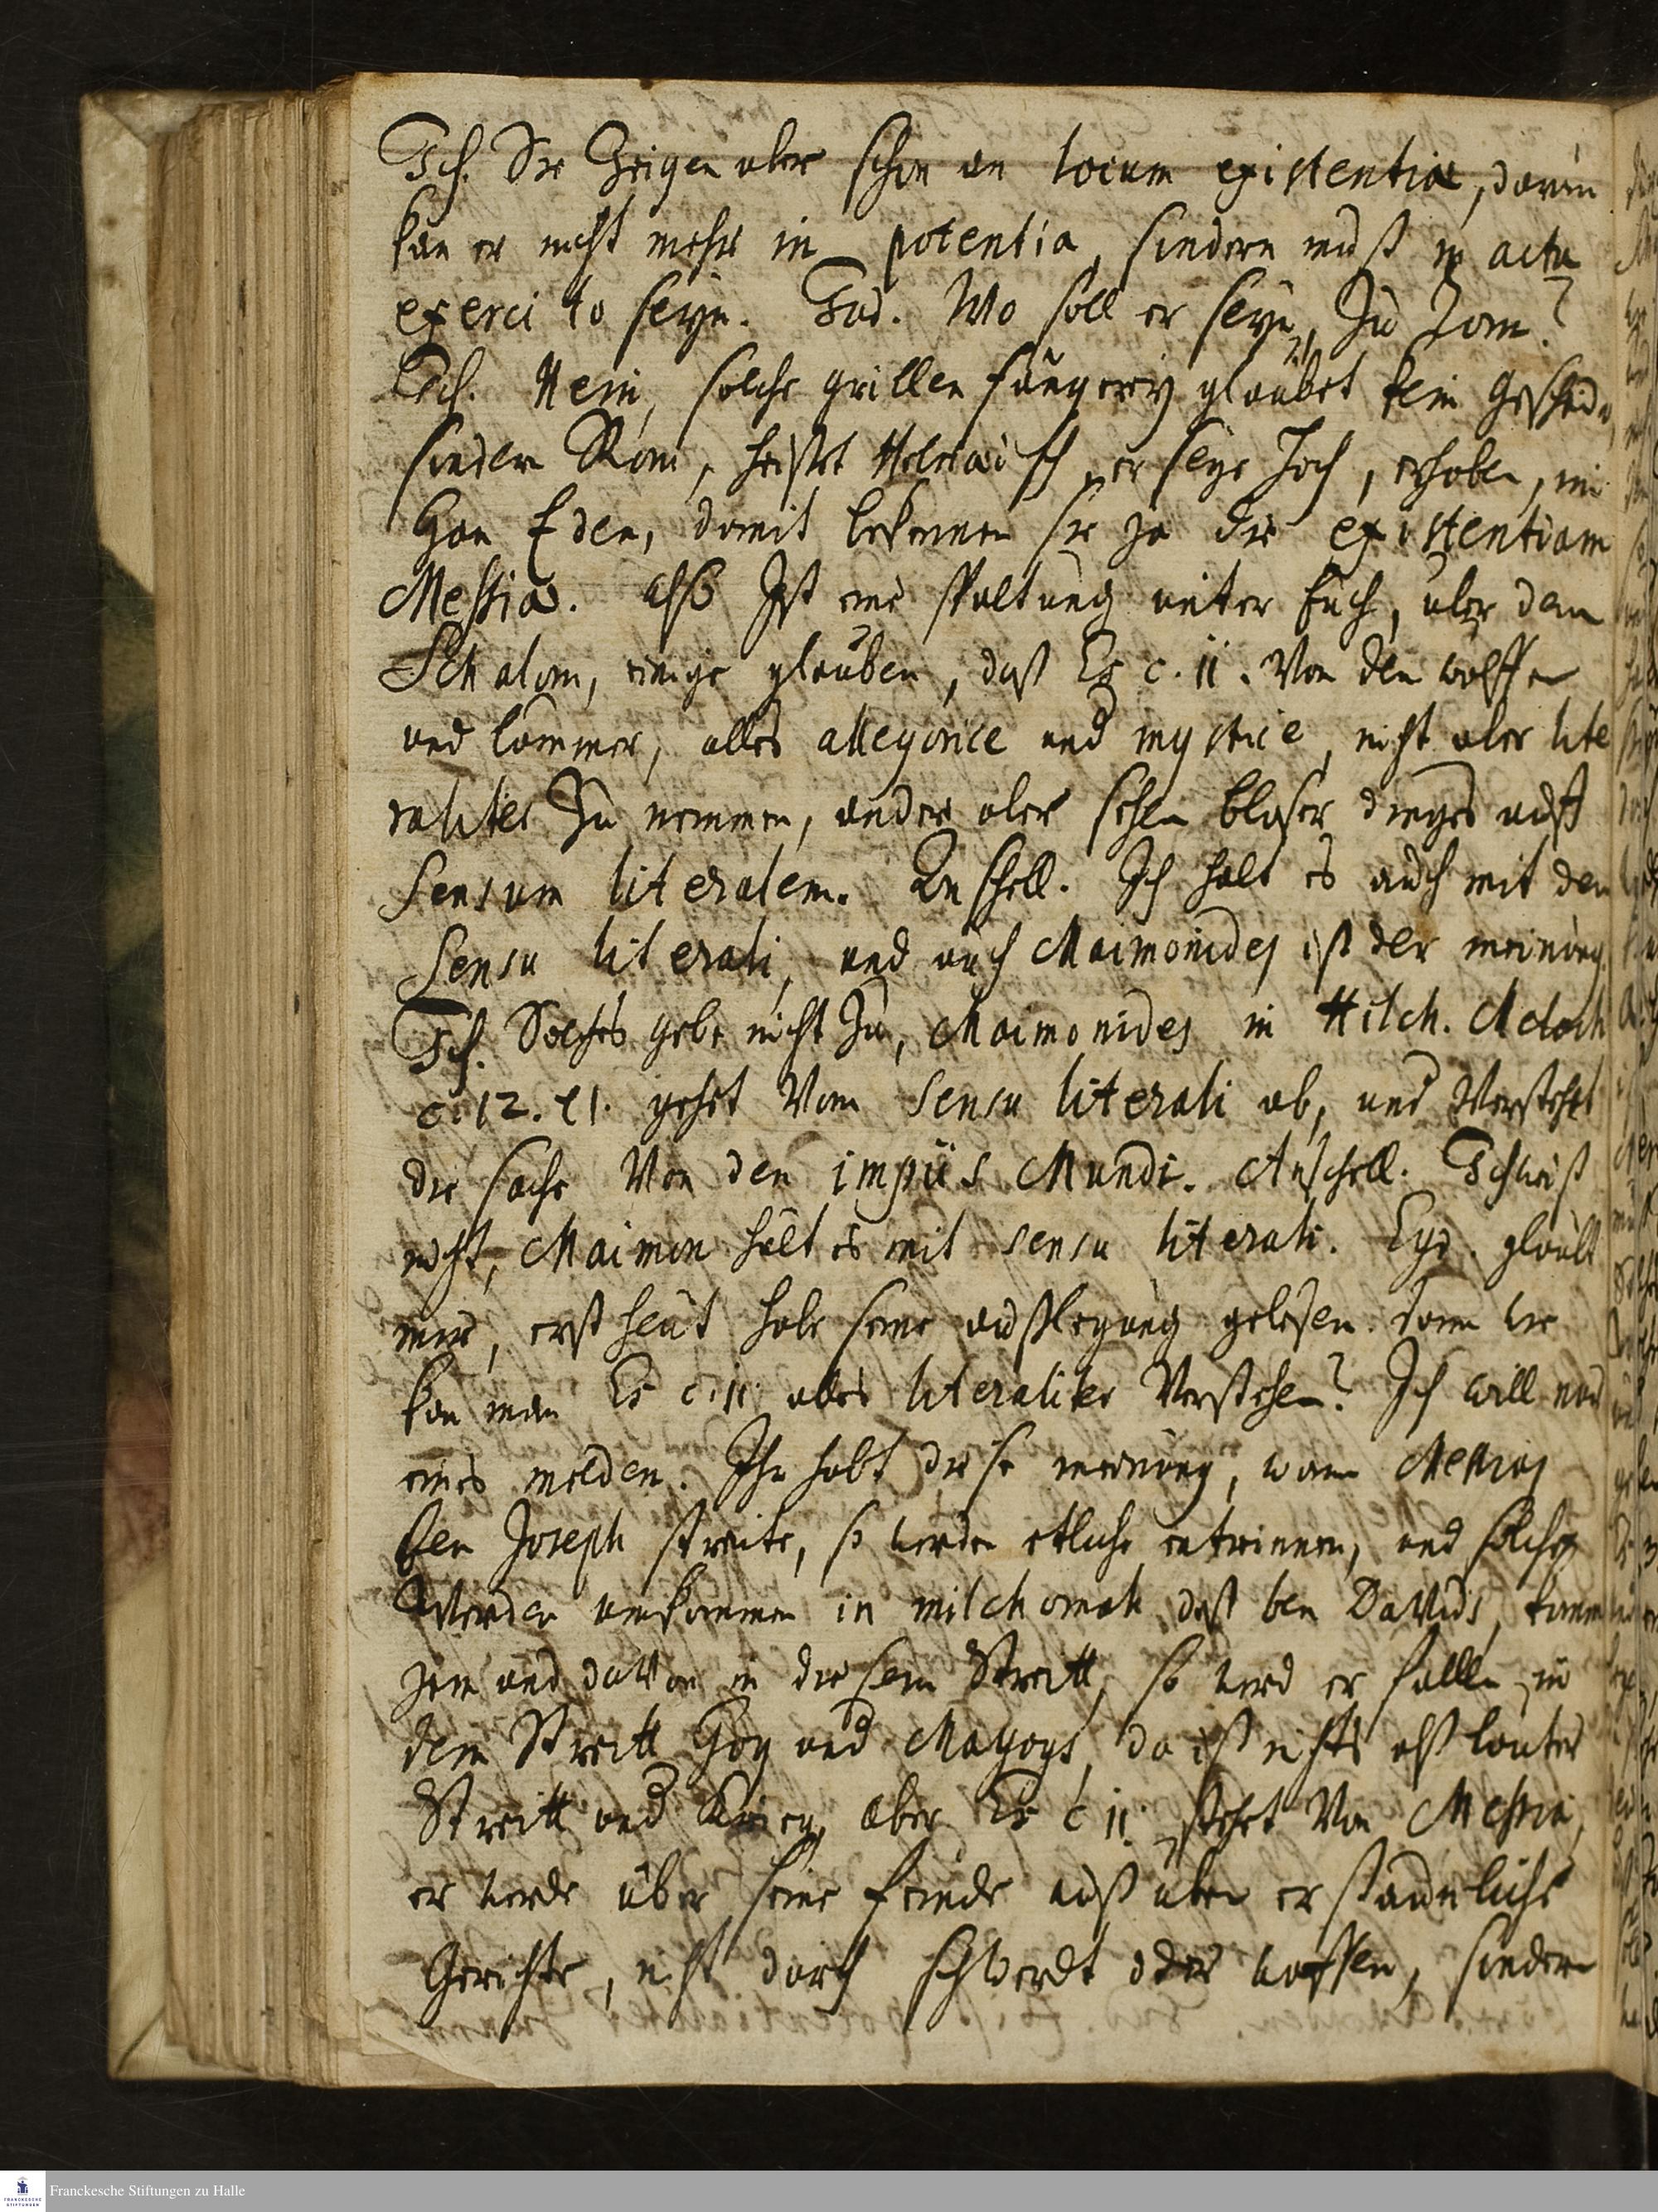 Ich. Sie Zeigen aber schon an locum existentiae, darum
kan er nicht mehr in potentia, sondern muß in actu
exercito seyn. Jud. Wo soll er seyn, Zu Rom?
Ich. Nein, solche grillen fängerey glaubet kein Gescheider,
sondern Rom, heist Hebräisch, er seye Hoch, erhoben, im
Gan Eden, damit bekennen sie ja die existentiam
Messiae. Also Ist eine spaltung unter Euch, über dem
Schalom, einige glauben, daß Es. c. 11. Von den wölffen
und lämmer, alles allegorice und mystice, nicht aber lite
raliter Zu nemmen, andere aber sehen bloser dinges auff
Sensum literalem. Anschell. Ich halt es auch mit dem
Sensu literali, und auch Maimonides ist der meinung.
Ich. Solches gebe nicht Zu, Maimonides in Hilch. Meloch
c. 12. 11. gehet Vom Sensu literali ab, und Verstehet
die sache Von den impiis Mundi. Anschell. Ich weiß
nicht, Maimon hält es mit sensu literali. Ego. glaubt
mir, erst heut habe seine außlegung gelesen. dann wie
kan man Es c. 11. alles literaliter Verstehen? Ich will nur
eines melden. Ihr habt diese meinung, wann Messias
ben Joseph streite, so werden etliche entrinnen, und solche
Werden umkommen in milchomah daß ben Davids, komm
jem and davon in diesem Streitt, so werd er fallen in
dem Streitt Gog und Magogs, da ist nichts alß lauter
Streitt und Krieg, aber Es c 11. stehet Von Messia,
er werde über seine feinde außüben erstaunliche
Gerichte, nicht durch Schwerdt oder waffen, sondern
Franckesche Stiftungen zu Halle